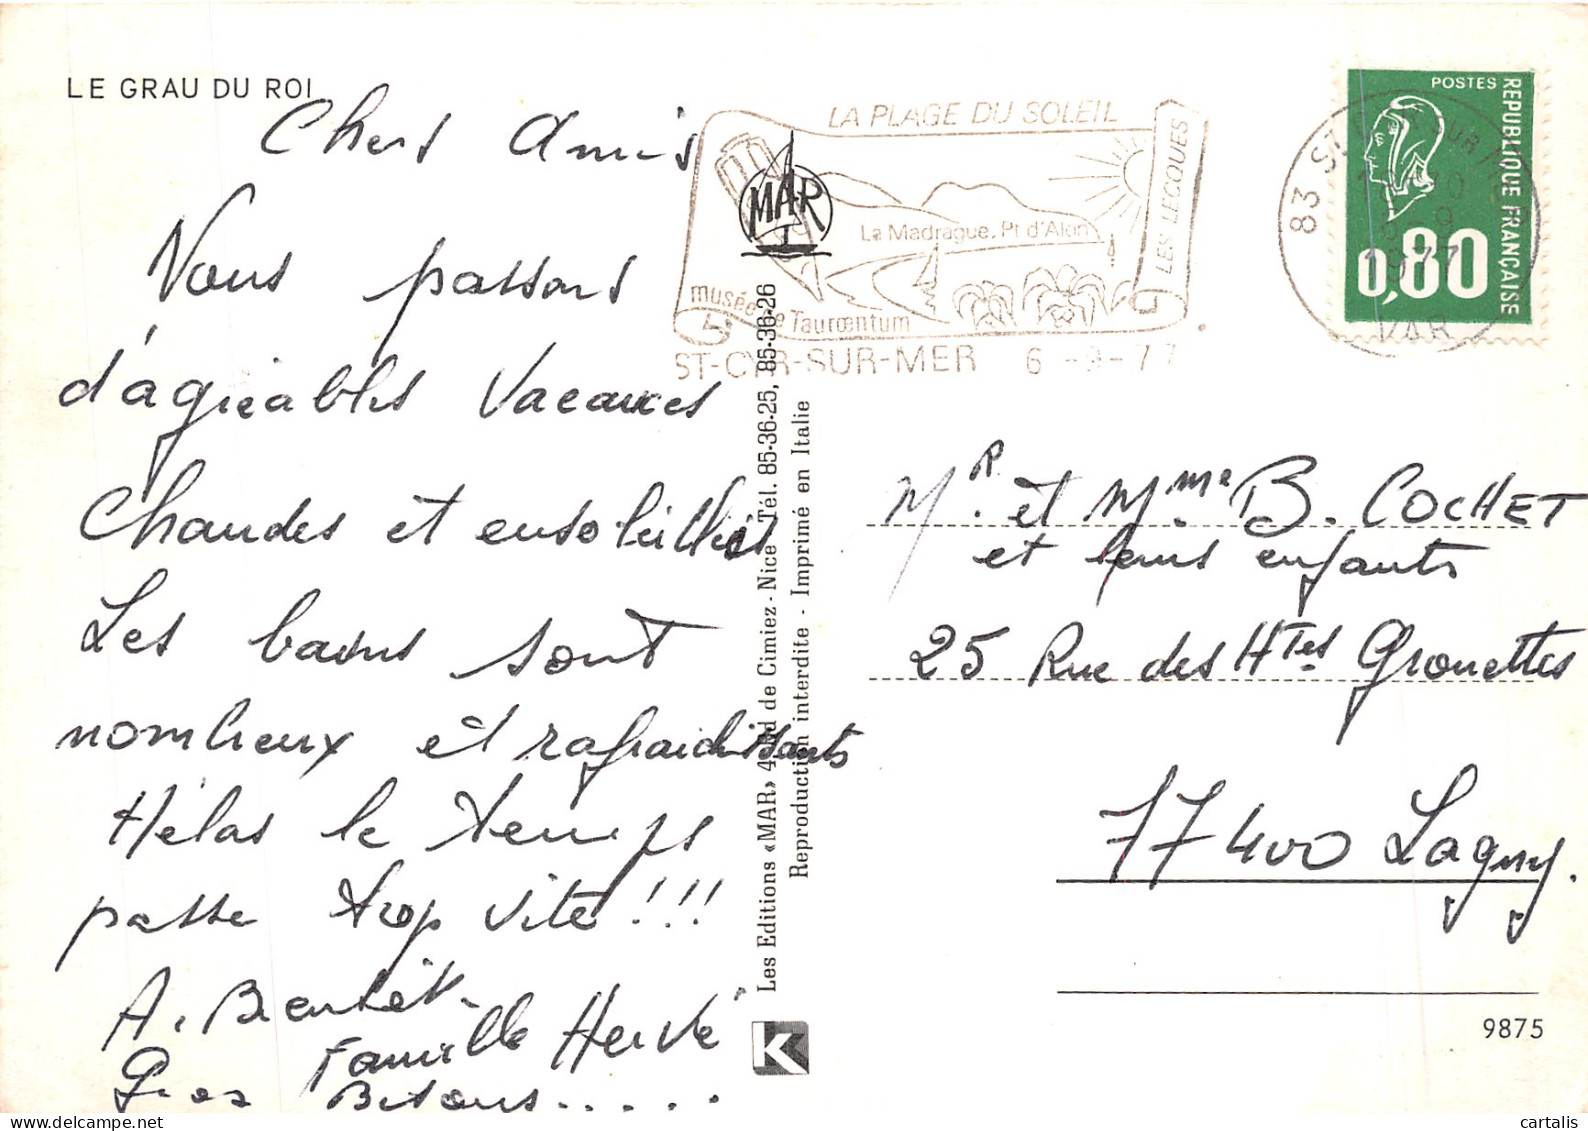 LE GRAU DU ROI
Chers Amis
Nous passons
d'agréables Vacances
Chaudes et ensoleillées
Les bains sont
nombreux et rafraichissants
Hélas le temps
passe trop vite !!!
A. Bientôt.
Famille Hervé
Gros Bisous.....
Les Editions «MAR» 4, Bd de Cimiez - Nice Tél. 85-36-25, 85-36-26
Reproduction interdite - Imprimé en Italie
MAR
K
LA PLAGE DU SOLEIL
LES LECQUES
La Madrague. Pt d'Alon
musée de Tauroentum
ST-CYR-SUR-MER 6 -9-77
POSTES
REPUBLIQUE FRANÇAISE
0,80
83 ST. SUR MER
9
1977
VAR
MR. et Mme. B. COCHET
et leurs enfants
25 Rue des Htes Grouettes
77400 Lagny.
9875
cartalis